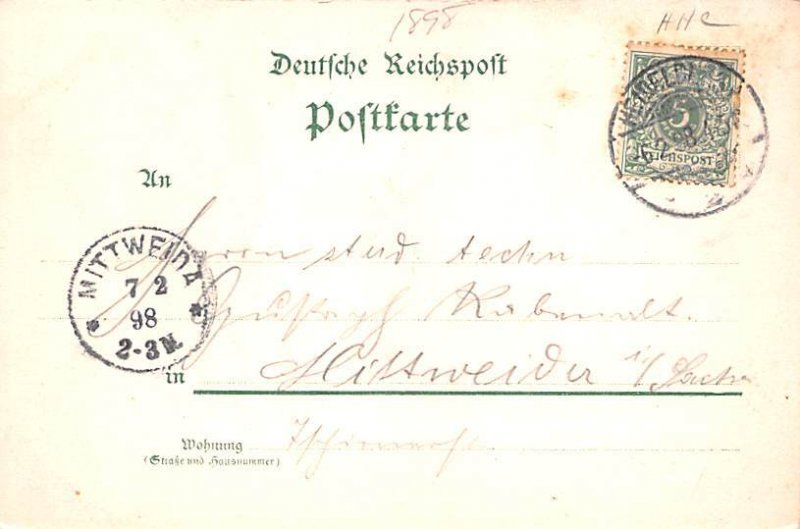 1898
HHC
Deutsche Reichspost
Postkarte
5
REICHSPOST
An
Herrn stud. techn
MITTWEIDA
7 2
98
2-3 N.
Gustaph
Mittweida i/ Sachs
in
Wohnung
(Straße und Hausnummer)